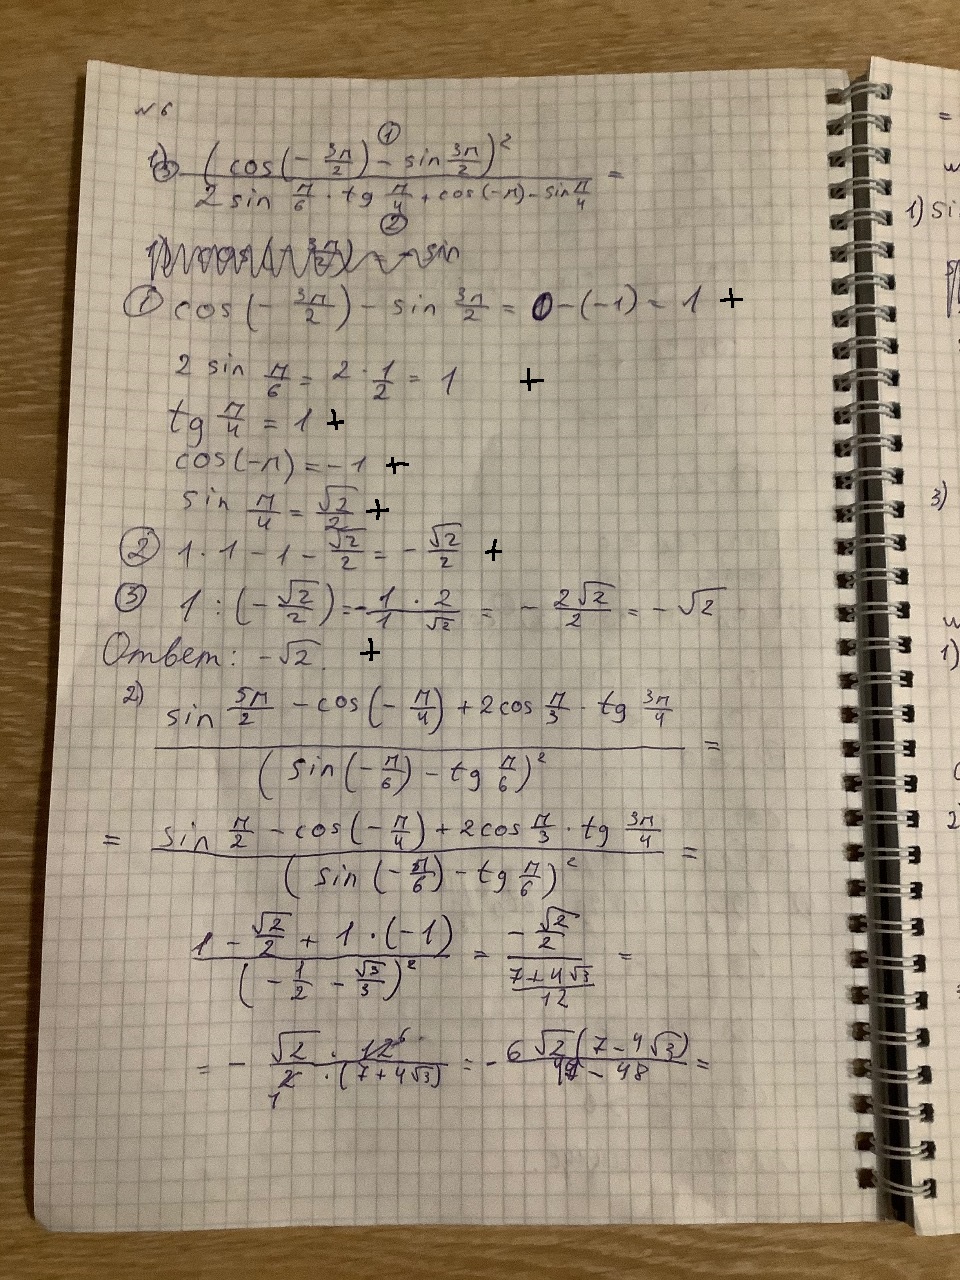 №6
1) (cos(-3π/2) - sin 3π/2)² ①
③ / (2 sin π/6 · tg π/4 + cos(-π) - sin π/4) =
②
① cos(-3π/2) - sin 3π/2 = 0 - (-1) = 1 +
2 sin π/6 = 2 · 1/2 = 1 +
tg π/4 = 1 +
cos(-π) = -1 +
sin π/4 = √2/2 +
② 1 · 1 - 1 - √2/2 = -√2/2 +
③ 1 : (-√2/2) = -1/1 · 2/√2 = -2√2/2 = -√2
Ответ: -√2. +
2) sin 5π/2 - cos(-π/4) + 2cos π/3 · tg 3π/4
/ (sin(-π/6) - tg π/6)² =
= sin π/2 - cos(-π/4) + 2cos π/3 · tg 3π/4
/ (sin(-π/6) - tg π/6)² =
(1 - √2/2 + 1 · (-1)) / (-1/2 - √3/3)² = (-√2/2) / ((7+4√3)/12) =
= - (√2 · 12 6) / (2 1 · (7+4√3)) = - (6√2(7-4√3)) / (49 - 48) =
=
1) si
3)
1)
2)